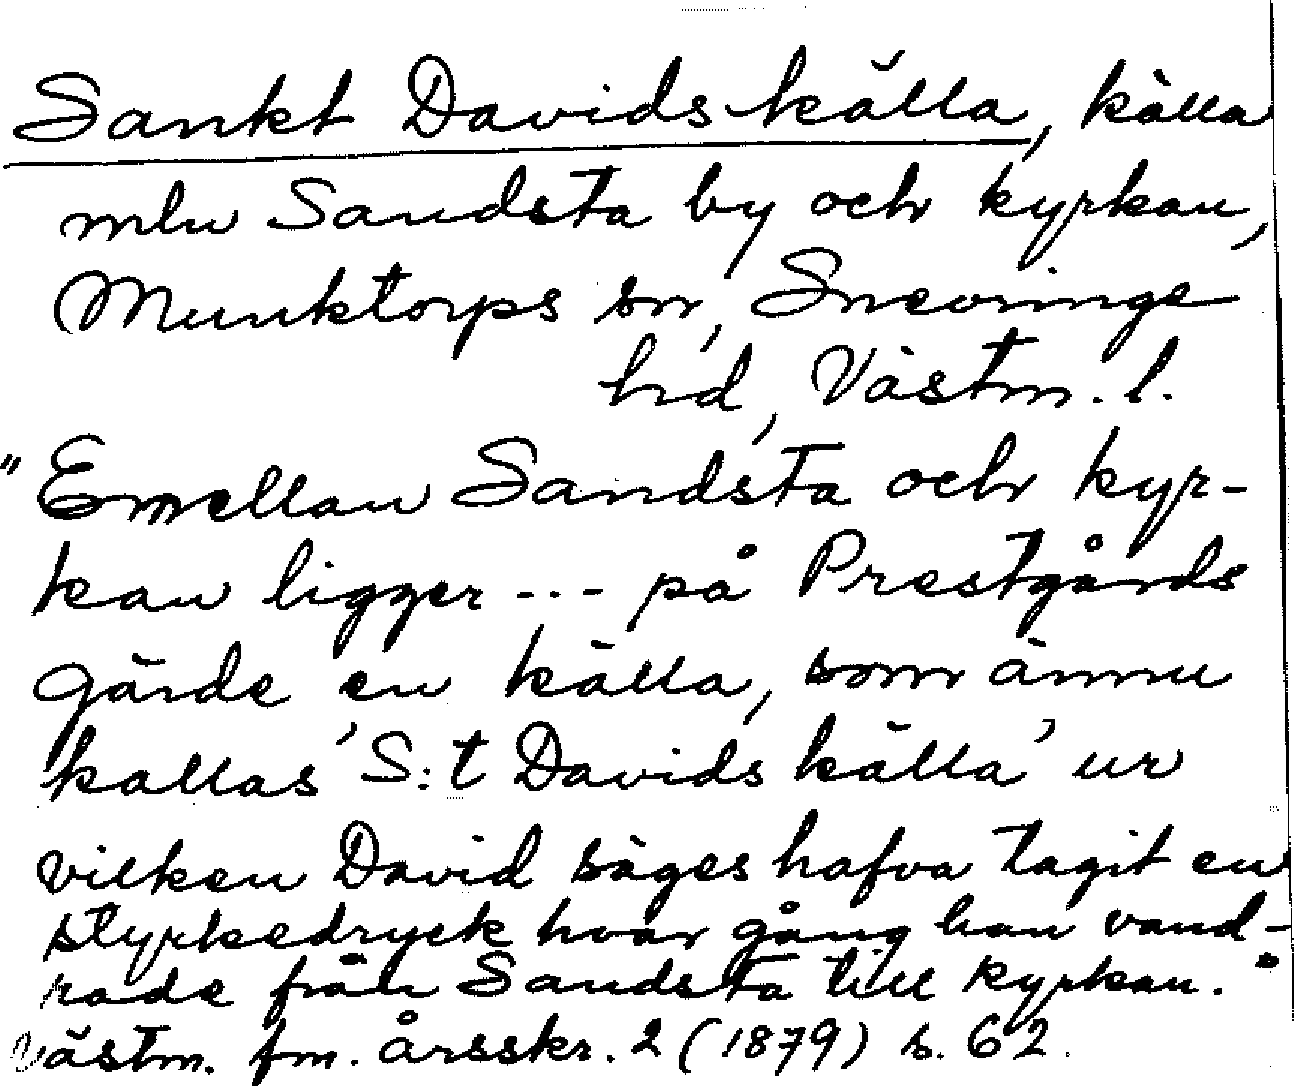 Sankt Davids källa, källa
mln Sandsta by och kyrkan,
Munktorps sn, Snevringe
hd, Västm. l.
"Emellan Sandsta och kyr-
kan ligger --- på Prestgårds
gärde en källa, som ännu
kallas 'S:t Davids källa' ur
vilken David säges hafva tagit en
styrkedryck hvar gång han vand-
rade från Sandsta till kyrkan."
Västm. fm. årsskr. 2 (1879) s. 62.